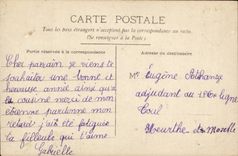 CARTE POSTALE
Tous les pays étrangers n'acceptent pas la correspondance au verso.
(Se renseigner à la Poste)
Partie réservée à la correspondance
Adresse du destinataire
Cher parrain je viens te
souhaiter une bonne et
heureuse année ainsi qu'a
la cousine merci de mon
étrenne pardonne mon
retard j'ais été fatiguée
ta filleule qui t'aime
Gabrielle
Mr Eugène
adjudant au ligne
Toul
Meurthe et Moselle